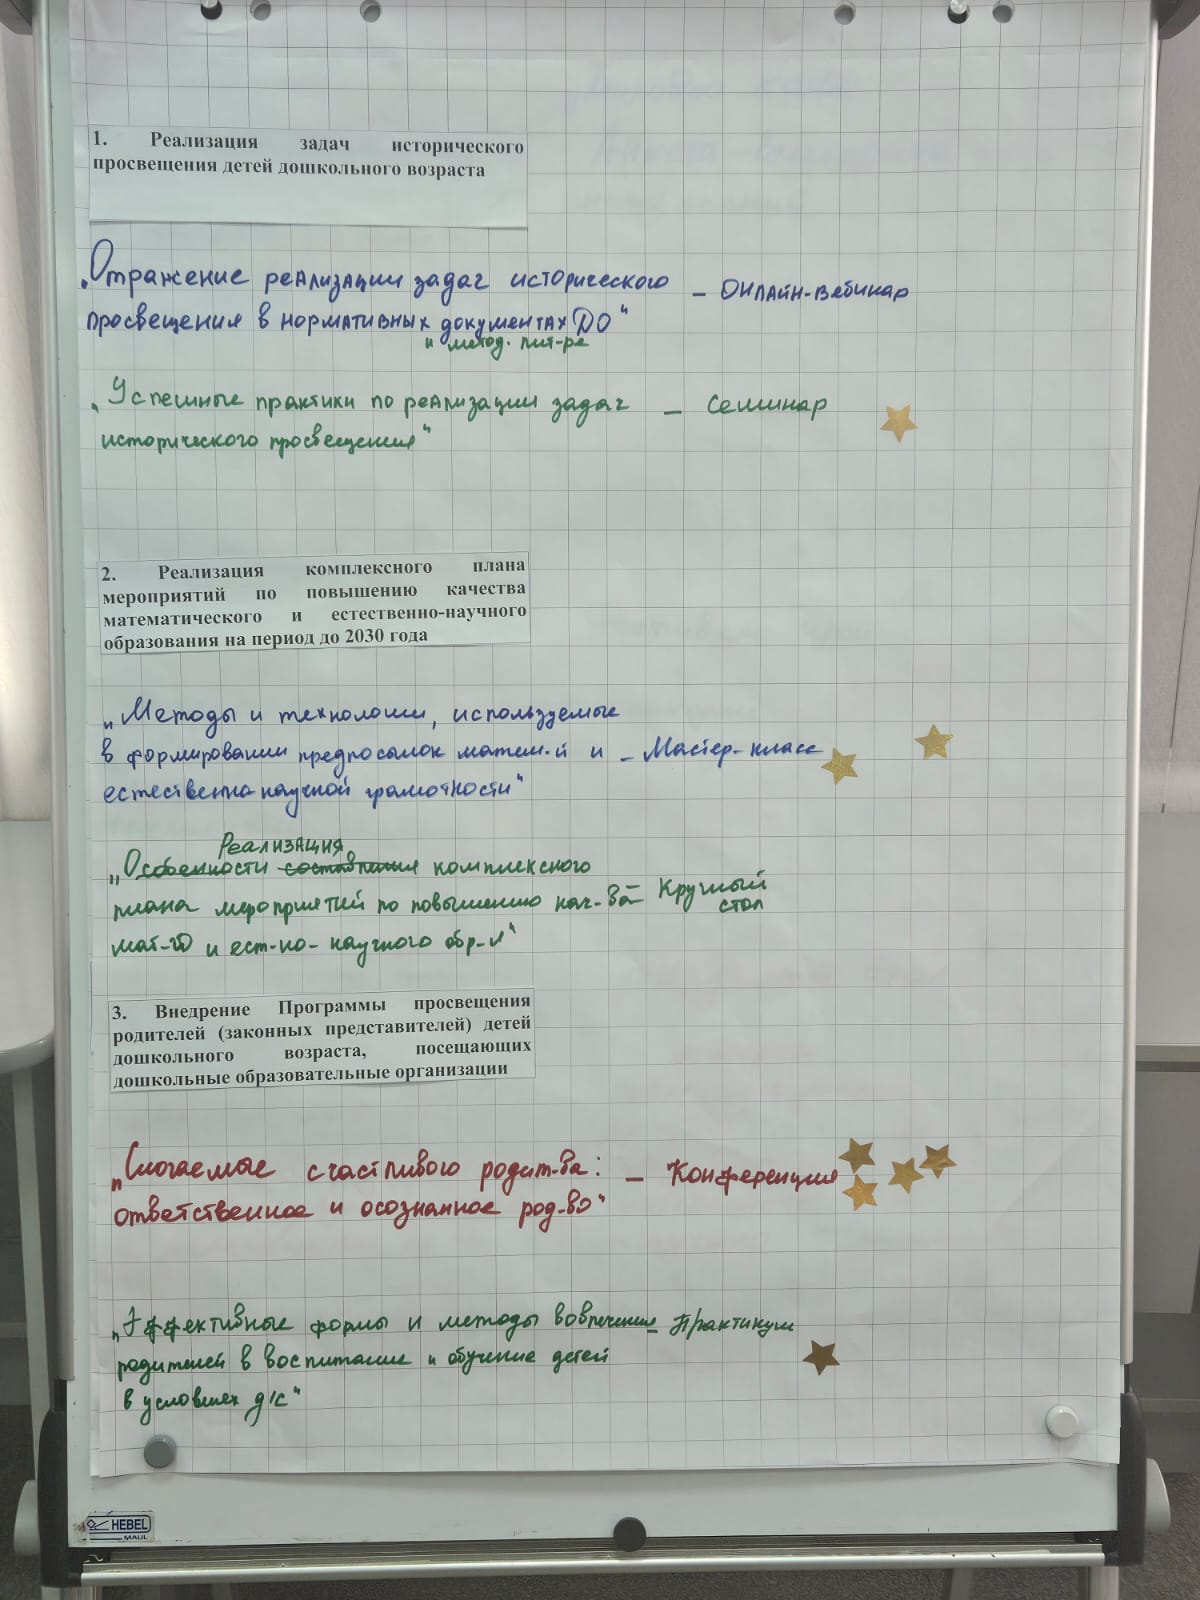 1. Реализация задач исторического
просвещения детей дошкольного возраста
„Отражение реализации задач исторического – онлайн-вебинар
просвещения в нормативных документах ДО"
и метод. лит-ре
„Успешные практики по реализации задач – семинар
исторического просвещения"
2. Реализация комплексного плана
мероприятий по повышению качества
математического и естественно-научного
образования на период до 2030 года
„Методы и технологии, используемые
в формировании предпосылок матем-й и – Мастер-класс
естественнонаучной грамотности"
Реализация
„Особенности составления комплексного
плана мероприятий по повышению кач-ва – Круглый
стол
мат-го и ест-но-научного обр-я"
3. Внедрение Программы просвещения
родителей (законных представителей) детей
дошкольного возраста, посещающих
дошкольные образовательные организации
„Слагаемые счастливого родит-ва: – Конференция
ответственное и осознанное род-во"
„Эффективные формы и методы вовлечения – Практикум
родителей в воспитание и обучение детей
в условиях д/с"
HEBEL
MAUL